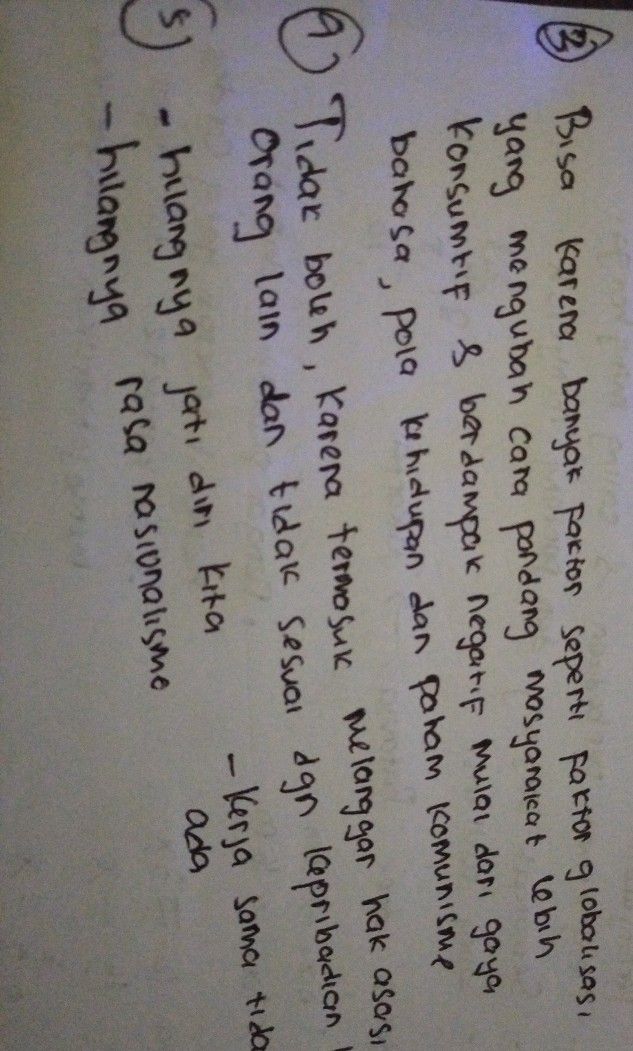 3) Bisa karena banyak faktor seperti faktor globalisasi
yang mengubah cara pandang masyarakat lebih
konsumtif & berdampak negatif mulai dari gaya
bahasa, pola kehidupan dan paham komunisme
4) Tidak boleh, karena termasuk melanggar hak asasi
orang lain dan tidak sesuai dgn kepribadian
5) - hilangnya jati diri kita
- hilangnya rasa nasionalisme
- kerja sama tida
ada